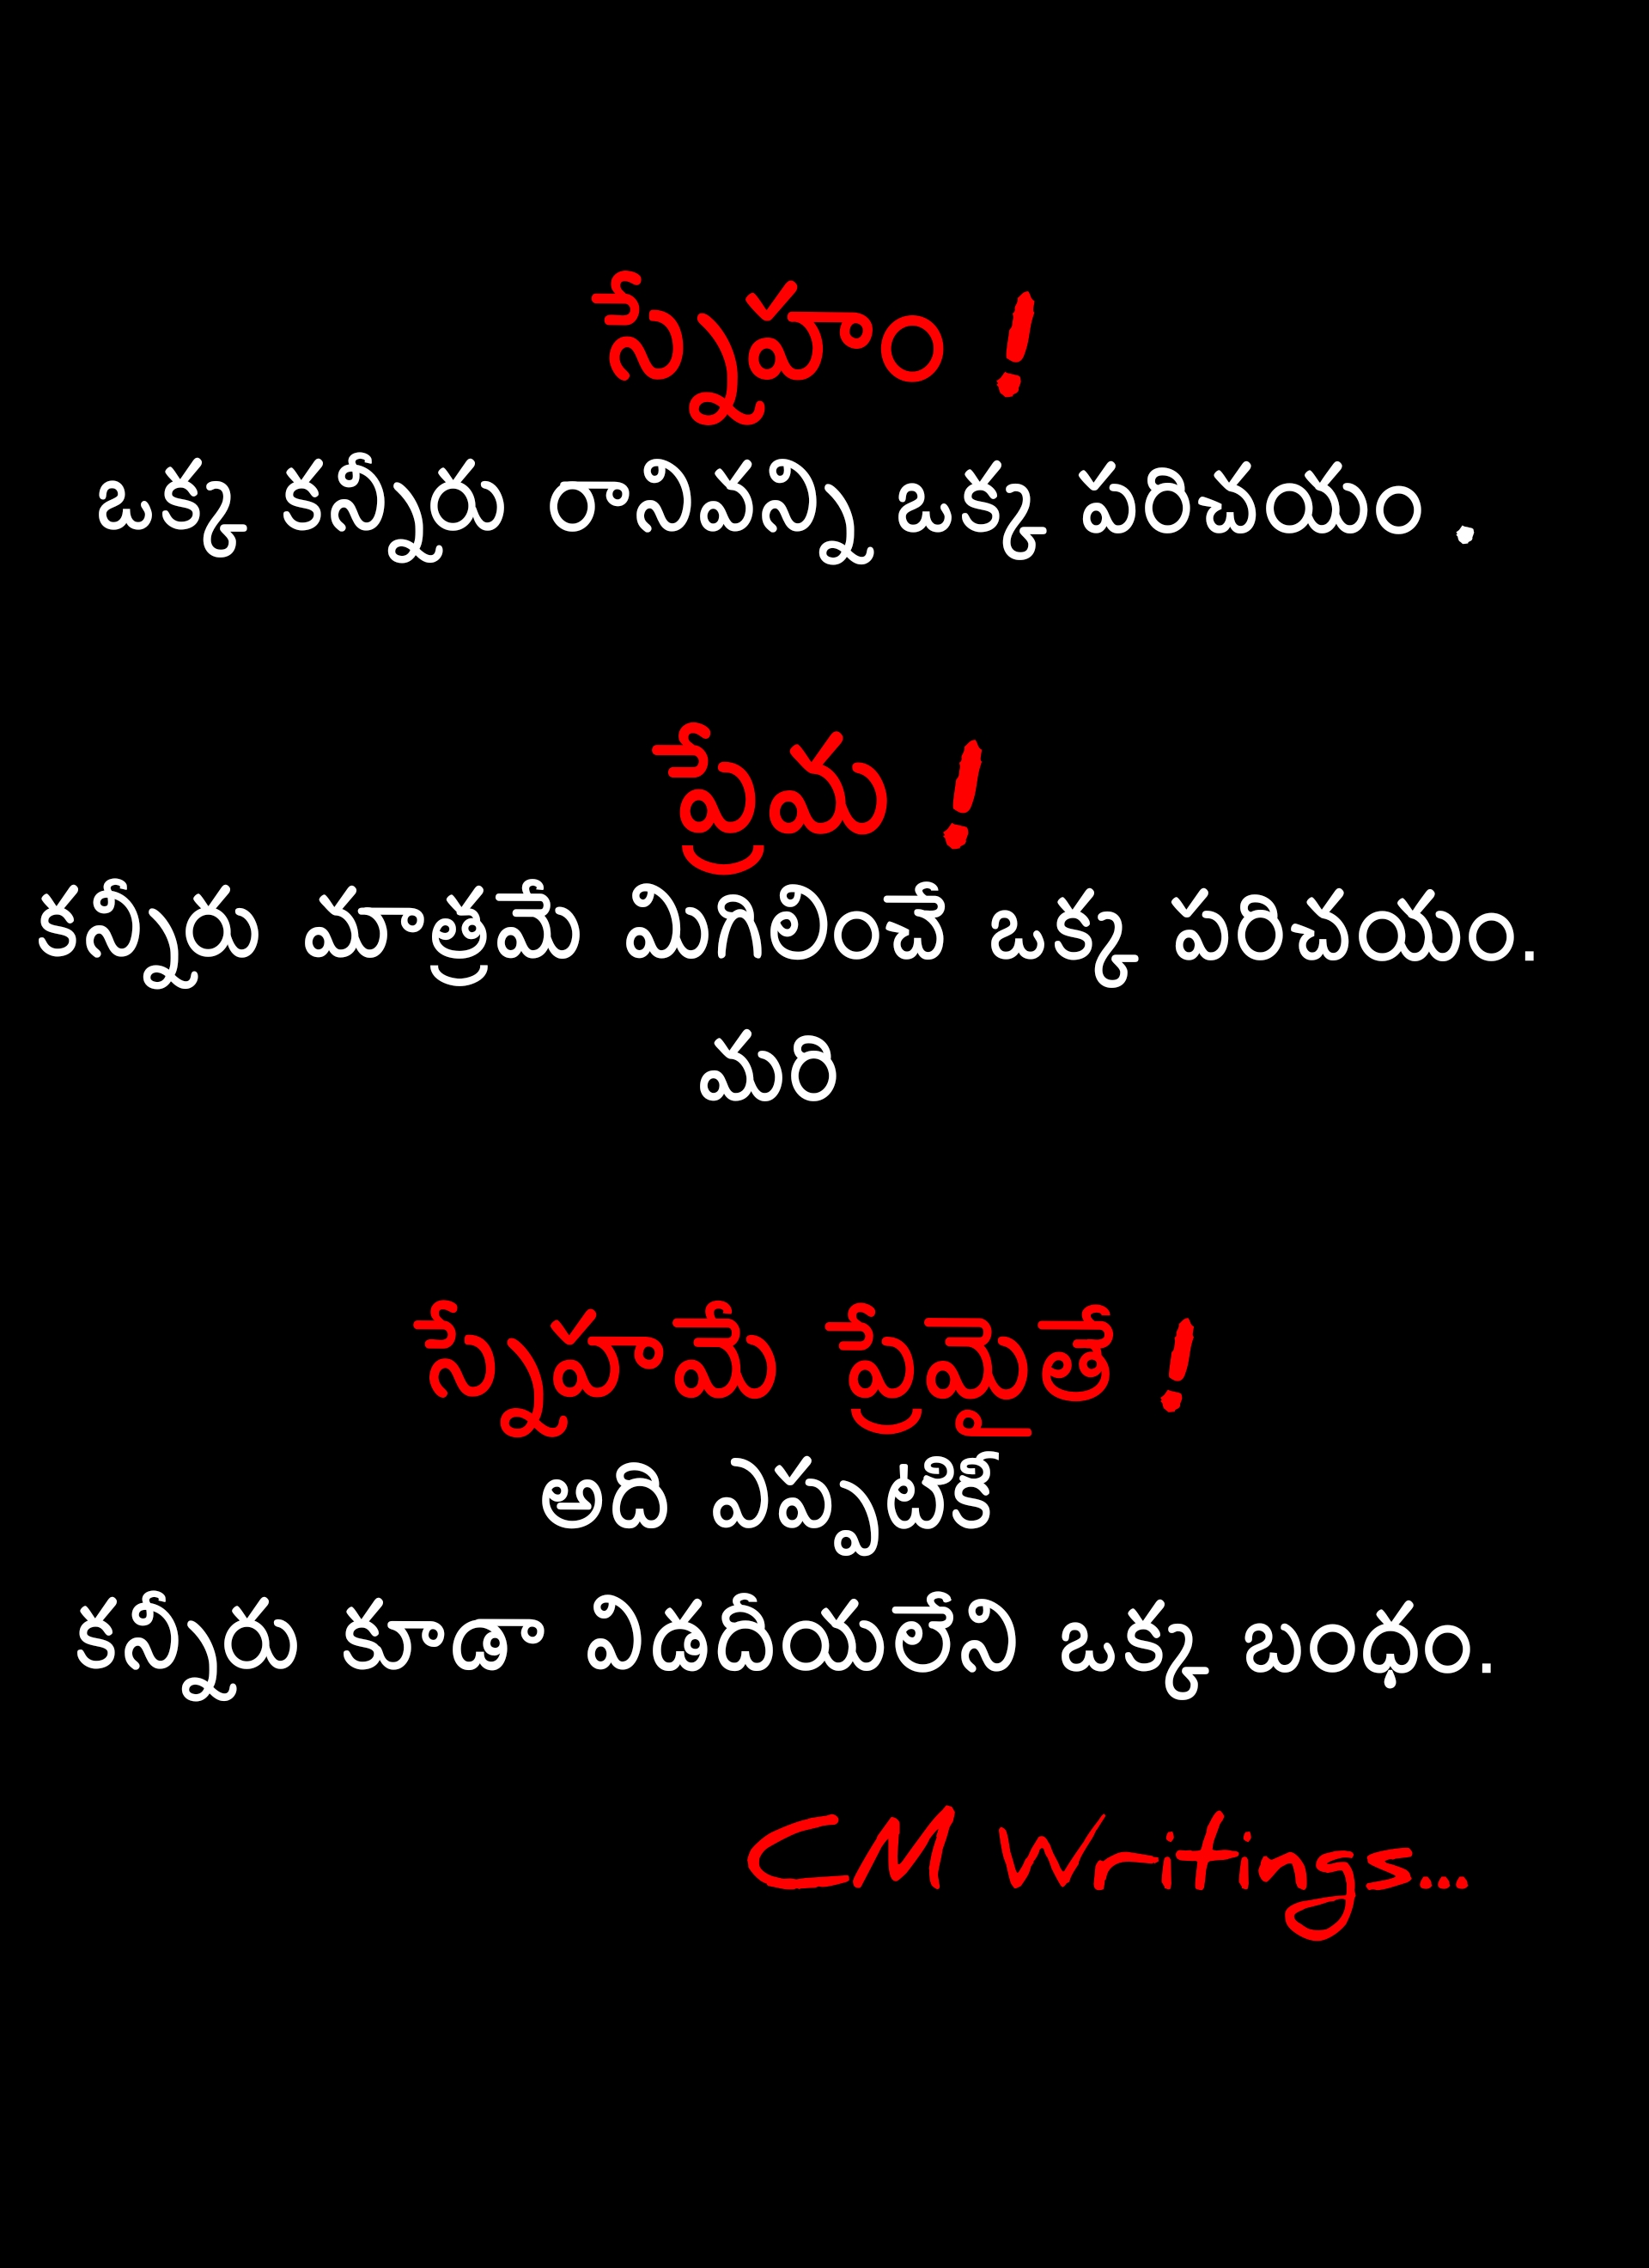 స్నేహం !
ఒక్క కన్నీరు రానివన్ని ఒక్క పరిచయం .
ప్రేమ !
కన్నీరు మాత్రమే మిగిలించే ఒక్క పరిచయం.
మరి
స్నేహమే ప్రేమైతే !
అది ఎప్పటికీ
కన్నీరు కూడా విడదీయలేని ఒక్క బంధం.
CM Writings...